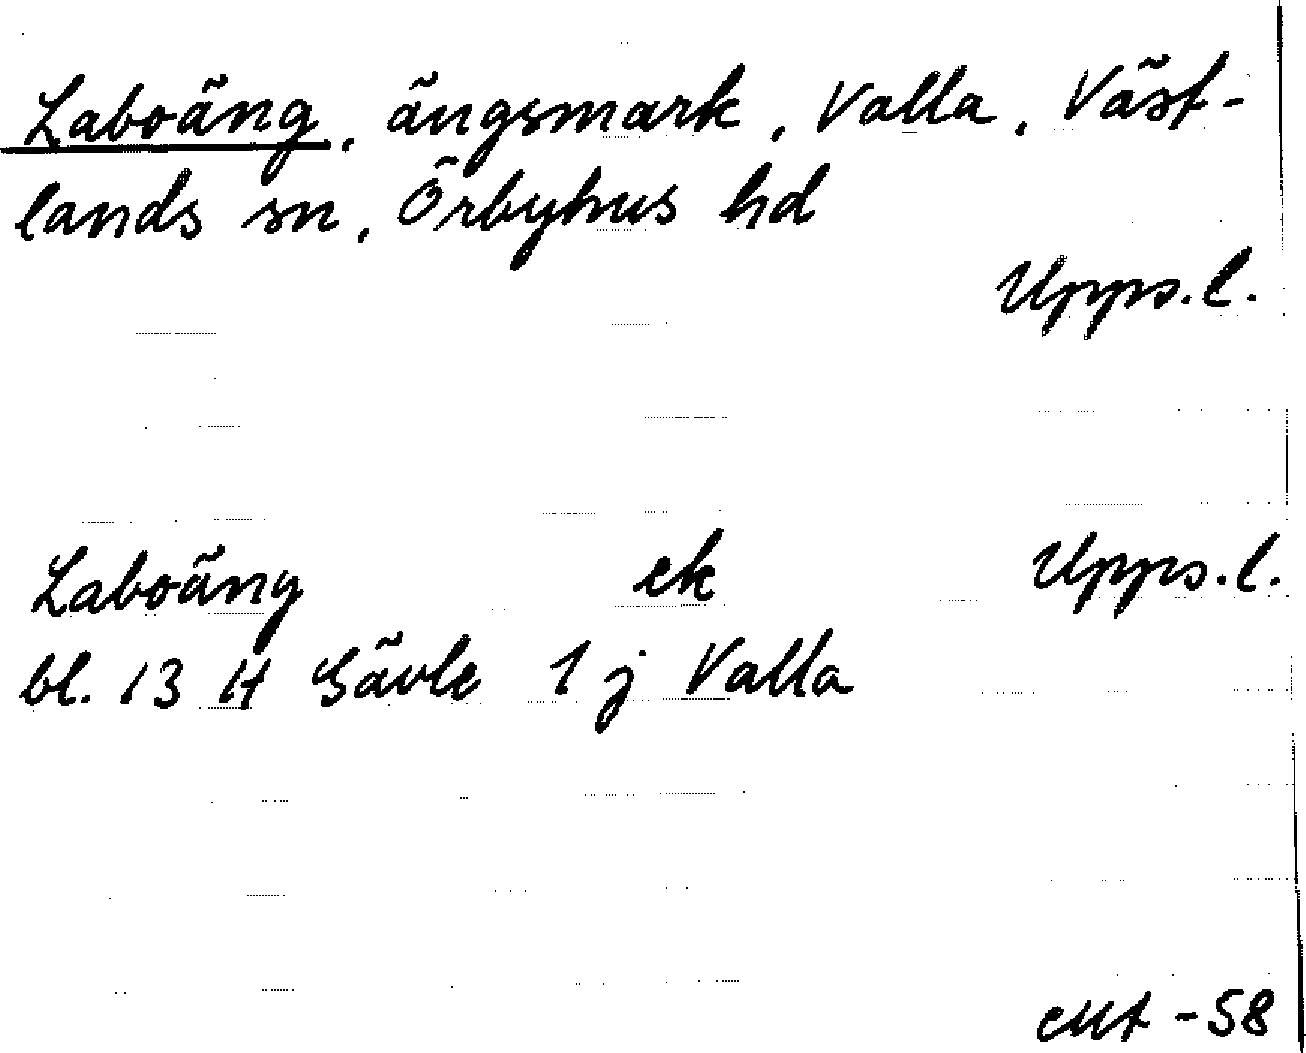 Laboäng, ängsmark, Valla, Väst-
lands sn, Örbyhus hd
Upps. l.
Laboäng ek Upps. l.
bl. 13 H Gävle 1 j Valla
-58